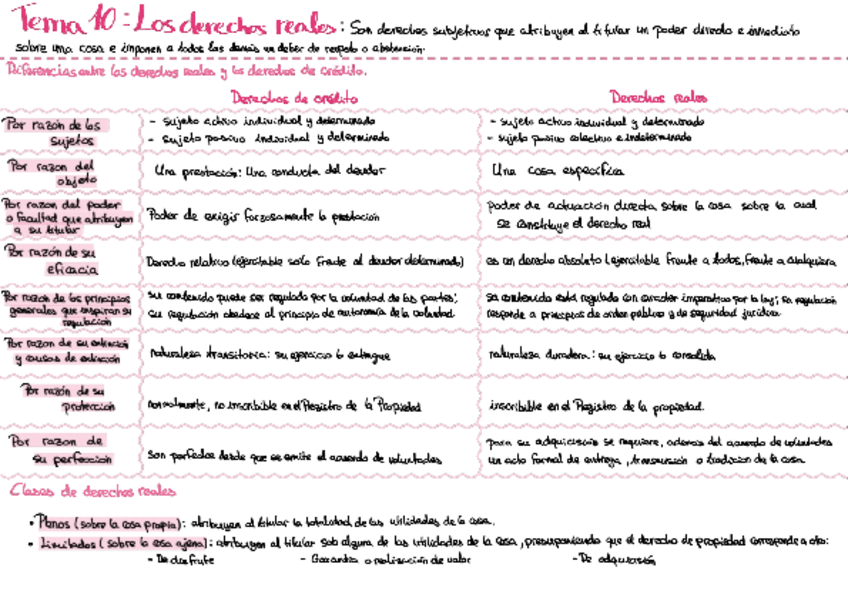 Tema 10: Los derechos reales: Son derechos subjetivos que atribuyen al titular un poder directo e inmediato
sobre una cosa e imponen a todos los demás un deber de respeto o abstención.
Diferencias entre los derechos reales y los derechos de crédito.
Derechos de crédito
Derechos reales
Por razón de los
sujetos
- sujeto activo individual y determinado
- sujeto pasivo individual y determinado
- sujeto activo individual y determinado
- sujeto pasivo colectivo e indeterminado
Por razon del
objeto
Una prestación: Una conducta del deudor
Una cosa específica
Por razon del poder
o facultad que atribuyen
a su titular
Poder de exigir forzosamente la prestación
poder de actuación directa sobre la cosa sobre la cual
se constituye el derecho real
Por razón de su
eficacia
Derecho relativo (ejercitable solo frente al deudor determinado)
es un derecho absoluto (ejercitable frente a todos, frente a cualquiera
Por razon de los principios
generales que inspiran su
regulación
su contenido puede ser regulado por la voluntad de las partes;
su regulación obedece al principio de autonomía de la voluntad.
su contenido está regulado con carácter imperativo por la ley; su regulación
responde a principios de orden público y de seguridad jurídica
Por razon de su extinción
y causas de extinción
naturaleza transitoria: su ejercicio lo extingue
naturaleza duradera: su ejercicio lo consolida
Por razón de su
protección
normalmente, no inscribible en el Registro de la Propiedad
inscribible en el Registro de la propiedad.
Por razon de
su perfeccion
son perfectos desde que se emite el acuerdo de voluntades
para su adquisición se requiere, además del acuerdo de voluntades
un acto formal de entrega, transmisión o tradición de la cosa
Clases de derechos reales
• Plenos (sobre la cosa propia): atribuyen al titular la totalidad de las utilidades de la cosa.
• Limitados (sobre la cosa ajena): atribuyen al titular solo alguna de las utilidades de la cosa, presuponiendo que el derecho de propiedad corresponde a otro:
- De disfrute - Garantía o realización de valor - De adquisición